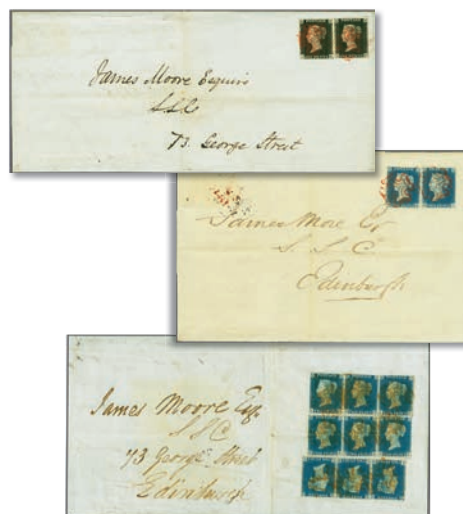 James Moore Esquire
SSC
73 George Street
James More Esq
S. S. C.
Edinburgh
James Moore Esq.
SSC
73 George Street
Edinburgh